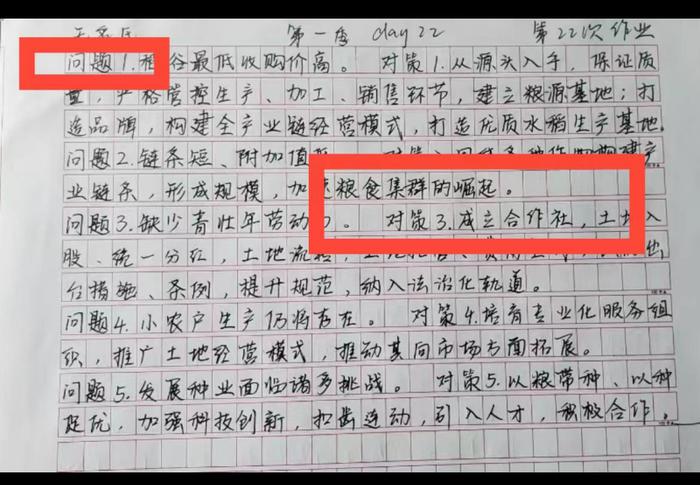 第一季 day 22 第22次作业
问题1.稻谷最低收购价高。 对策1.从源头入手，保证质
量，严格管控生产、加工、销售环节，建立粮源基地；打
造品牌，构建全产业链经营模式，打造优质水稻生产基地。
问题2.链条短、附加值 产
业链条，形成规模，加 粮食集群的崛起。
问题3.缺少青壮年劳动 。 对策3.成立合作社，土 入
股、统一分红，土地流 出
台措施、条例，提升规范，纳入法治化轨道。
问题4.小农户生产仍将存在。 对策4.培育专业化服务组
织，推广土地经营模式，推动其向市场方面拓展。
问题5.发展种业面临诸多挑战。 对策5.以粮带种、以种
促优，加强科技创新，扣齿连动，引入人才，积极合作。